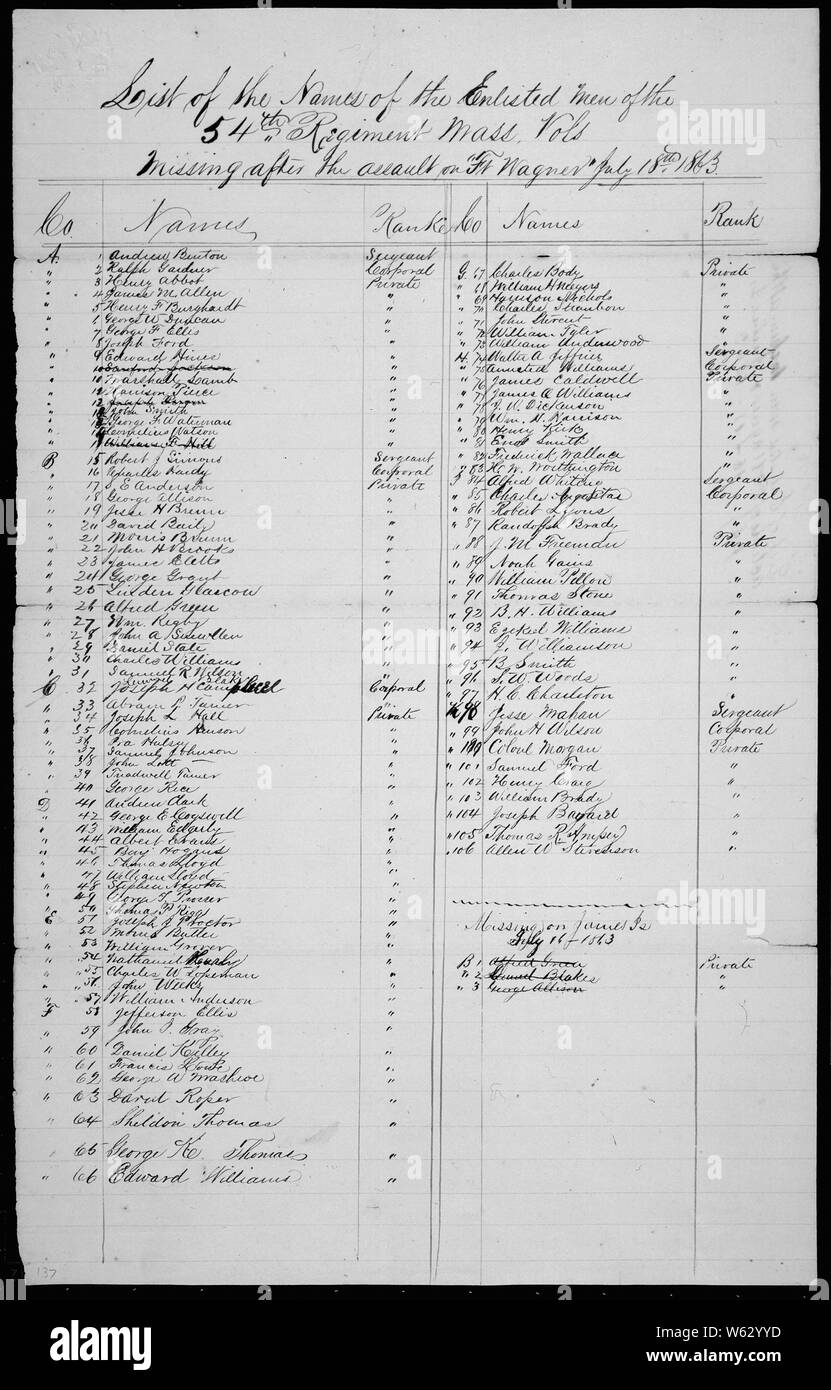 List of the Names of the Enlisted men of the
54th Regiment Mass. Vols
Missing after the assault on "Ft Wagner" July 18th 1863.
Co. Names Rank
A. 1 Andrew Benton Sergeant
" 2 Ralph Gardner Corporal
" 3 Henry Abbot Private
" 4 James M. Allen "
" 5 Henry F Burghardt "
" 6 George W Duncan "
" 7 George F Ellis "
" 8 Joseph Ford "
" 9 Edward Hines "
" 10 Sanford Jackson "
" 11 Marshall Lamb "
" 12 Harrison Pierce "
" 13 John Smith "
" George F Waterman "
" Cornelius Watson "
" William F Hill "
B 15 Robert J Simmons Sergeant
" 16 Charles Hardy Corporal
" 17 S. E Anderson Private
" 18 George Allison "
" 19 Jesse H Brown "
" 20 David Baily "
" 21 Morris Brown "
" 22 John H Brooks "
" 23 James "
" 24 George Grant "
" 25 Linden Glascon "
" 26 Alfred Green "
" 27 Wm. Rigby "
" 28 John A "
" 29 Daniel State "
" 30 Charles Williams "
" 31 Samuel R Wilson "
C. 32 Joseph H Campbell Corporal
" 33 Abram P Turner "
" 34 Joseph L Hall Private
" 35 Cornelius Henson "
" 36 Ira Hulsey "
" 37 Samuel Johnson "
" 38 John Lott "
" 39 Treadwell Turner "
" 40 George Rice "
D 41 Andrew Clark "
" 42 George E Cogswell "
" 43 William Edgerly "
" 44 Albert Evans "
" 45 Benj Hogans "
" 46 Thomas Lloyd "
" 47 William Lloyd "
" 48 Stephen Newton "
" 49 George T Prosser "
" 50 Thomas P Riggs "
E 51 Joseph J Proctor "
" 52 Morris Butler "
" 53 William Grover "
" 54 Nathaniel Hurley "
" 55 Charles W Hopeman "
" 56 John Weeks "
" 57 William Anderson "
F 58 Jefferson Ellis "
" 59 John I. Gray "
" 60 Daniel Kelley "
" 61 Francis Lowe "
" 62 George W Moshroe "
" 63 David Roper "
" 64 Sheldon Thomas "
" 65 George K. Thomas "
" 66 Edward Williams "
Co Names Rank
G 67 Charles Body Private
" 68 William H Meyers "
" 69 Harrison Nichols "
" 70 Charles Stanton "
" 71 John "
" 72 William Tyler "
" 73 William Underwood "
H. 74 Walter A Jeffries Sergeant
" 75 Armsted Williams Corporal
" 76 James Caldwell Private
" 77 James O Williams "
" 78 J. W. Dickinson "
" 79 Wm. H. Harrison "
" 80 Henry Kirk "
" 81 Enos Smith "
" 82 Frederick Wallace "
" 83 H. W. Worthington "
I 84 Alfred Whiting Sergeant
" 85 Charles Augustas Corporal
" 86 Robert Lyons "
" 87 Randolph Brady "
" 88 J. M. Freeman Private
" 89 Noah Gains "
" 90 William "
" 91 Thomas Stone "
" 92 B. H. Williams "
" 93 Ezekiel Williams "
" 94 J. Williamson "
" 95 B. Smith "
" 96 S. W. Woods "
" 97 H. C. Charlston "
K 98 Jesse Mahan Sergeant
" 99 John H Wilson Corporal
" 100 Colonl Morgan Private
" 101 Samuel Ford "
" 102 Henry Craig "
" 103 William Brady "
" 104 Joseph Bayard "
" 105 Thomas R Ampsey "
" 106 Allen W Stevenson "
Missing on James Is
July 16 - 1863
B 1 Alfred Green Private
" 2 Lemuel Blakes "
" 3 George Allison "
137
alamy
Image ID: W62YYD
www.alamy.com